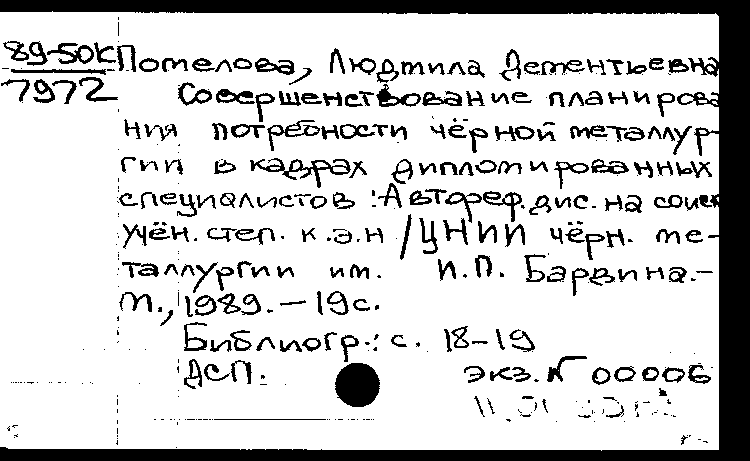 89-50К Потелова, Людмила Дементьевна
7972 Совершенствование планирова
ния потребности чёрной металлур-
гии в кадрах дипломированных
специалистов : Автореф. дис. на соиск
учён. степ. к.э.н / ЦНИИ чёрн. ме-
таллургии им. И.П. Бардина.-
М., 1989. - 19 с.
Библиогр.: с. 18-19
ДСП. экз. № 00006